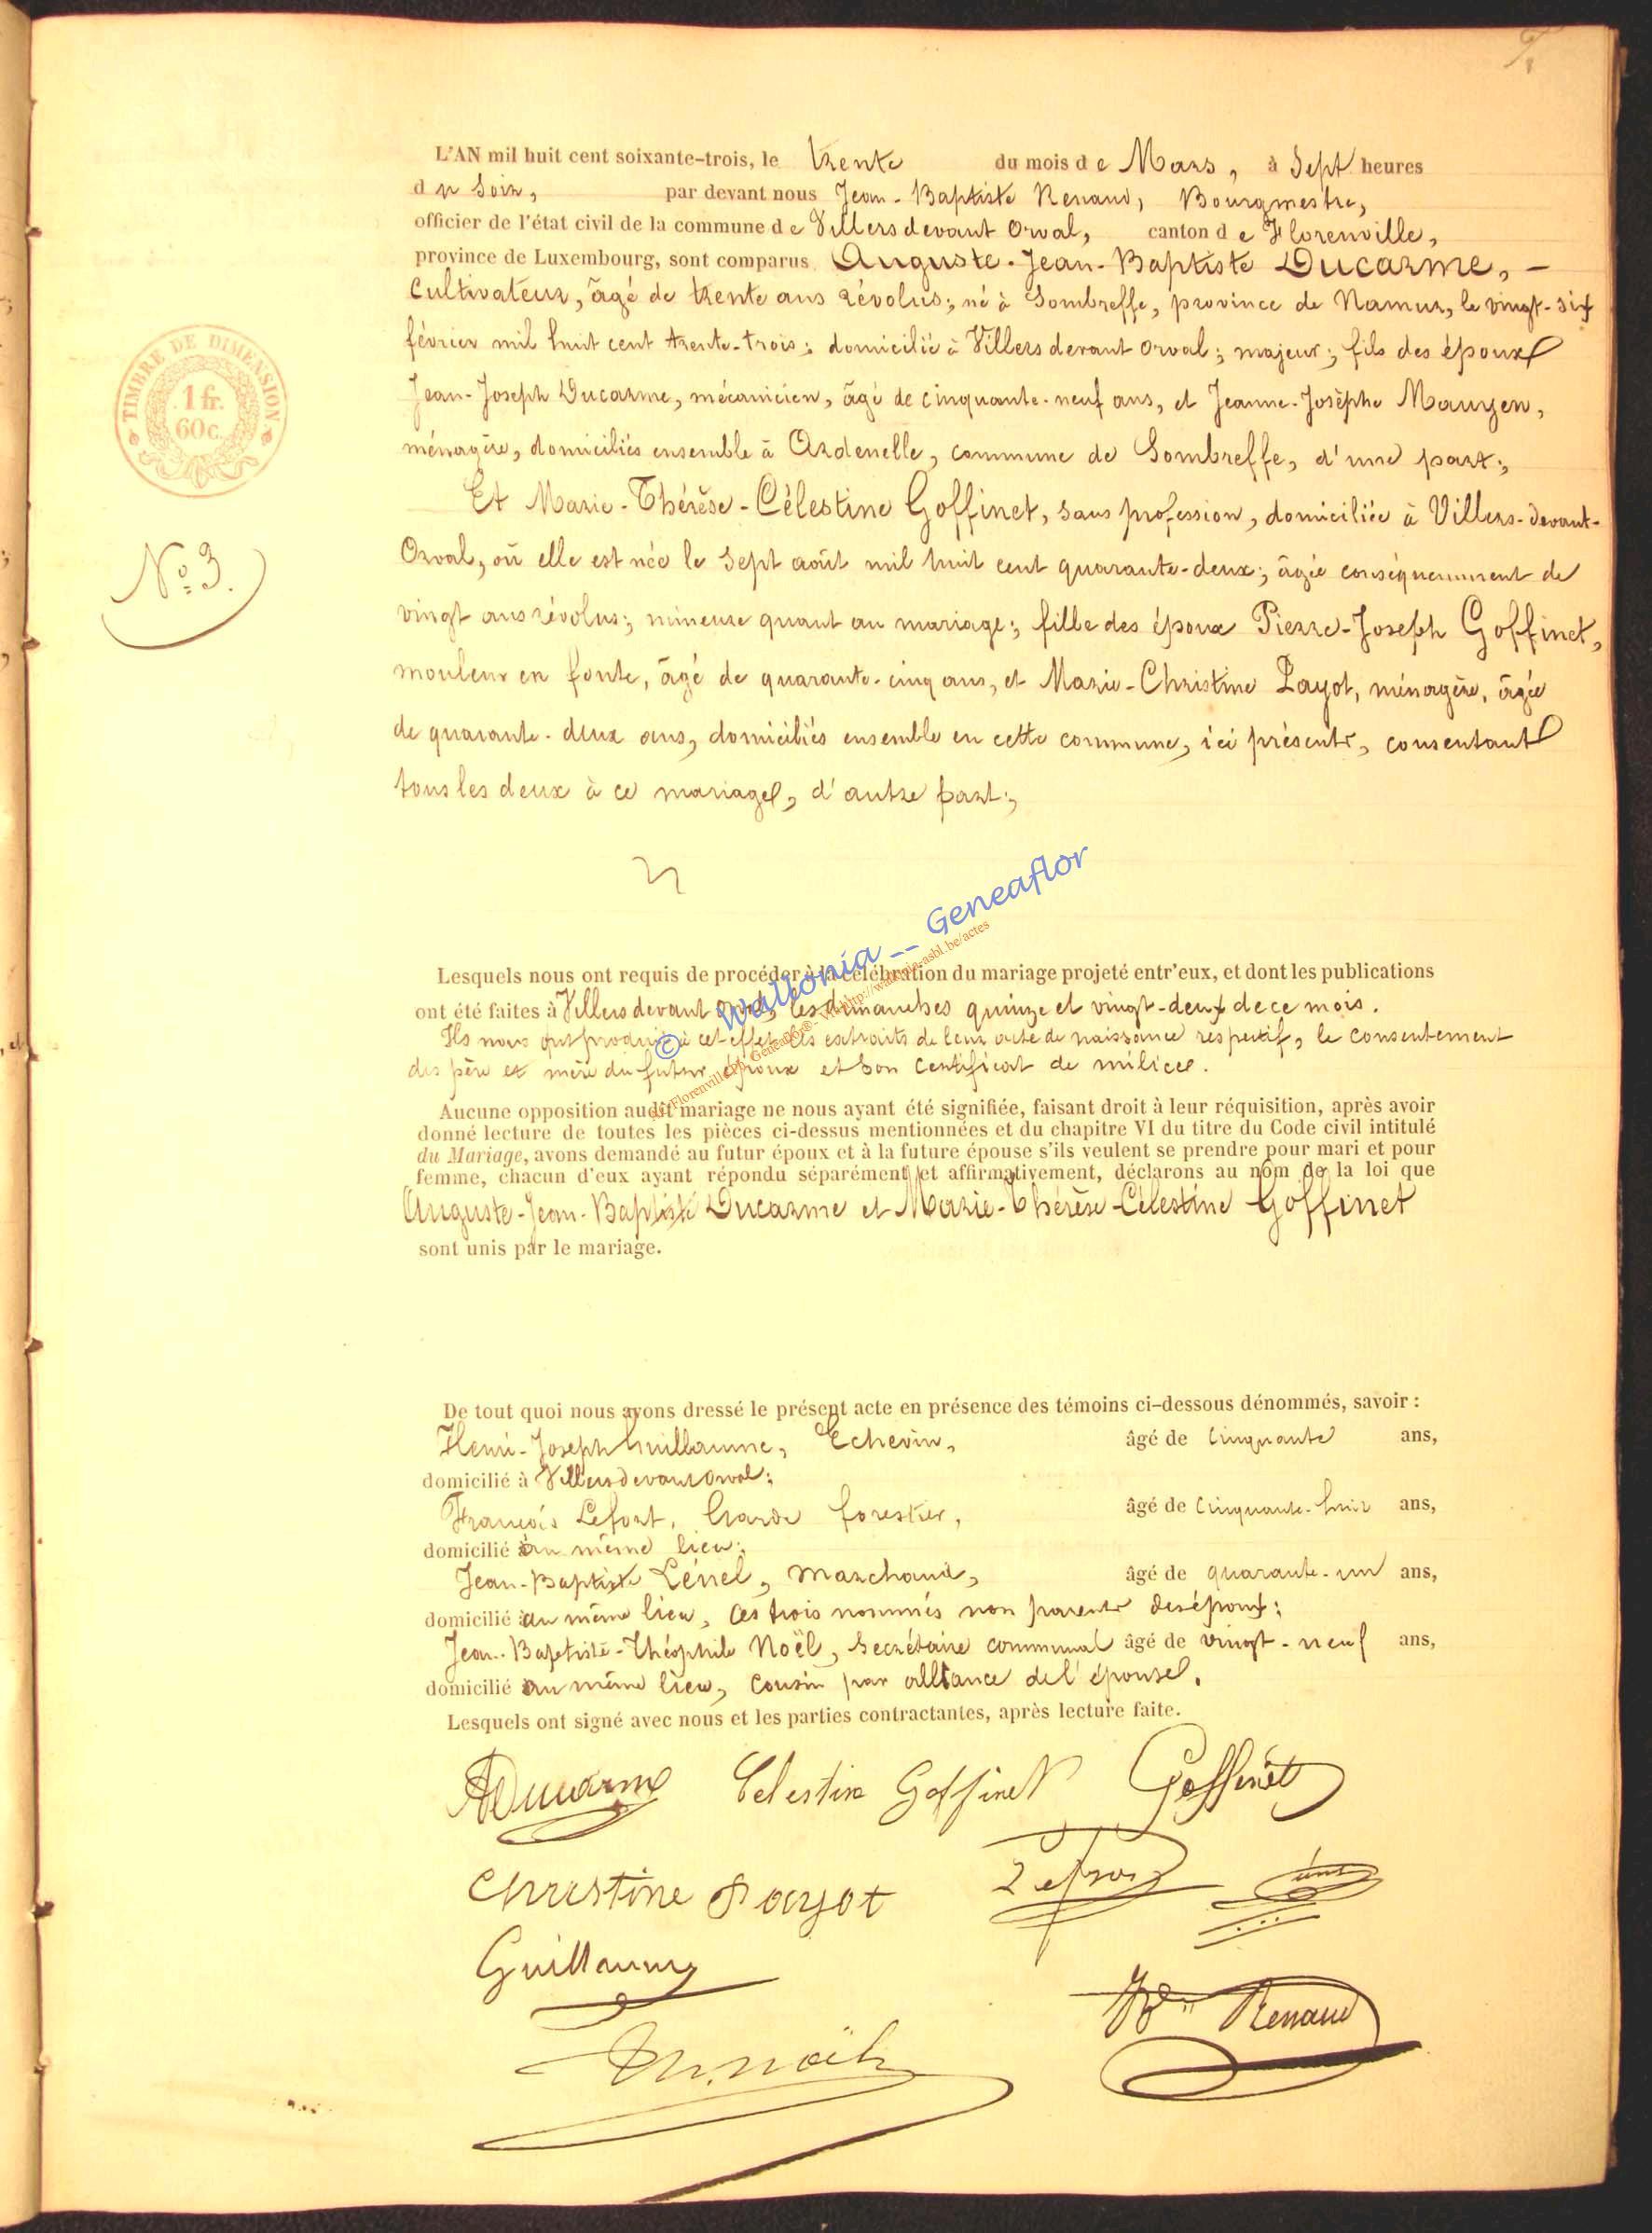 L'AN mil huit cent soixante-trois, le trente du mois de Mars, à Sept heures
du soir, par devant nous Jean-Baptiste Renaud, Bourgmestre,
officier de l'état civil de la commune de Villers devant Orval, canton de Florenville,
province de Luxembourg, sont comparus Auguste-Jean-Baptiste Ducarme, -
Cultivateur, âgé de trente ans révolus; né à Sombreffe, province de Namur, le vingt-six
février mil huit cent trente-trois; domicilié à Villers devant Orval; majeur; fils des époux
Jean-Joseph Ducarme, mécanicien, âgé de cinquante-neuf ans, et Jeanne-Josèphe
ménagère, domiciliés ensemble à Ardenelle, commune de Sombreffe, d'une part;
Et Marie-Thérèse-Célestine Goffinet, sans profession, domiciliée à Villers-devant-
Orval, où elle est née le sept août mil huit cent quarante-deux; âgée conséquemment de
vingt ans révolus; mineure quant au mariage; fille des époux Pierre-Joseph Goffinet,
mouleur en fonte, âgé de quarante-cinq ans, et Marie-Christine Payot, ménagère, âgée
de quarante-deux ans, domiciliés ensemble en cette commune, ici présents, consentant
tous les deux à ce mariage, d'autre part;
N° 3.
TIMBRE DE DIMENSION
1 fr.
60 c.
Lesquels nous ont requis de procéder à la célébration du mariage projeté entr'eux, et dont les publications
ont été faites à Villers devant Orval, les dimanches quinze et vingt-deux de ce mois.
Ils nous ont produit à cet effet les extraits de leur acte de naissance respectif, le consentement
des père et mère du futur époux et son certificat de milice.
© Wallonia -- Geneaflor
Aucune opposition audit mariage ne nous ayant été signifiée, faisant droit à leur réquisition, après avoir
donné lecture de toutes les pièces ci-dessus mentionnées et du chapitre VI du titre du Code civil intitulé
du Mariage, avons demandé au futur époux et à la future épouse s'ils veulent se prendre pour mari et pour
femme, chacun d'eux ayant répondu séparément et affirmativement, déclarons au nom de la loi que
Auguste-Jean-Baptiste Ducarme et Marie-Thérèse-Célestine Goffinet
sont unis par le mariage.
De tout quoi nous avons dressé le présent acte en présence des témoins ci-dessous dénommés, savoir :
Henri-Joseph Guillaume, Echevin, âgé de cinquante ans,
domicilié à Villers devant Orval;
François Lefort, Garde forestier, âgé de cinquante-huit ans,
domicilié au même lieu;
Jean-Baptiste marchand, âgé de quarante-un ans,
domicilié au même lieu, ces trois nommés non parents des époux;
Jean-Baptiste-Théophile Noël, Secrétaire communal âgé de vingt-neuf ans,
domicilié au même lieu, cousin par alliance de l'épouse.
Lesquels ont signé avec nous et les parties contractantes, après lecture faite.
ADucarme Celestine Goffinet Goffinet
Christine Payot Lefort
Guillaume
Renaud
Noël